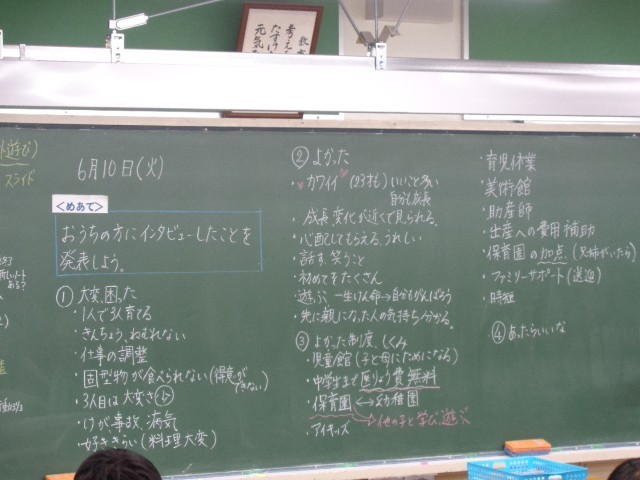 教
考え
たすけ
元気
外遊び)
スライド
6月10日(火)
<めあて>
おうちの方にインタビューしたことを
発表しよう。
① 大変、困った
・1人で3人育てる
・きんちょう、ねむれない
・仕事の調整
・固型物が食べられない(得意ができない)
・3人目は大変さ小
・けが、事故、病気
・好ききらい(料理大変)
② よかった
・カワイイ (0才も) いいこと多い
自分も成長
・成長、変化が近くで見られる。
・心配してもらえる、うれしい
・話す、笑うこと
・初めてをたくさん
・遊ぶ 一生けん命→自分もがんばろう
・先に親になった人の気持ち分かる。
③ よかった制度、しくみ
・児童館(子と母にためになる)
・中学生まで医りょう費無料
・保育園↔幼稚園
→他の子と学び、遊ぶ
・アイキッズ
・育児休業
・美術館
・助産師
・出産への費用補助
・保育園の加点(兄姉がいたら)
・ファミリーサポート(送迎)
・時短
④ あったらいいな